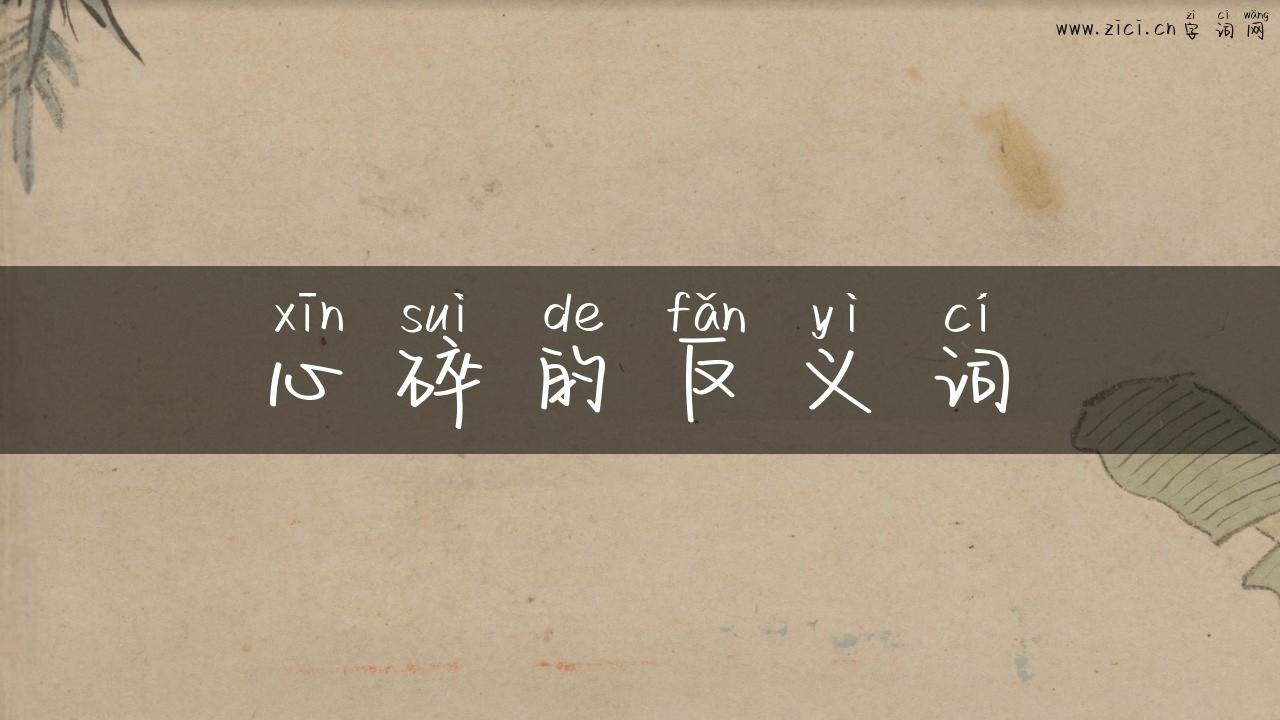 zì cí wǎng
www.zici.cn 字词网
xīn suì de fǎn yì cí
心碎的反义词